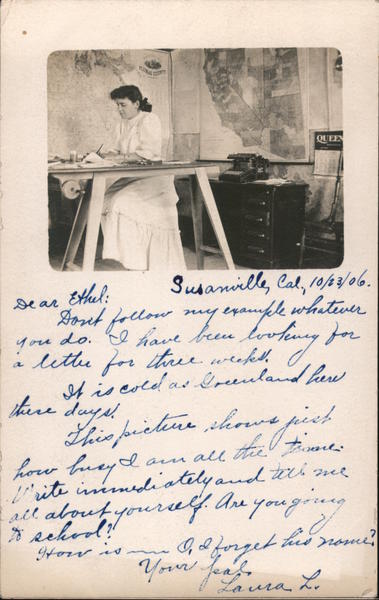 QUEEN
Susanville, Cal., 10/23/06.
Dear Ethel:
Don't follow my example whatever
you do. I have been looking for
a letter for three weeks.
It is cold as Greenland here
these days!
This picture shows just
how busy I am all the time.
Write immediately and tell me
all about yourself. Are you going
to school?
How is — O, I forget his name?
Your pal,
Laura L.